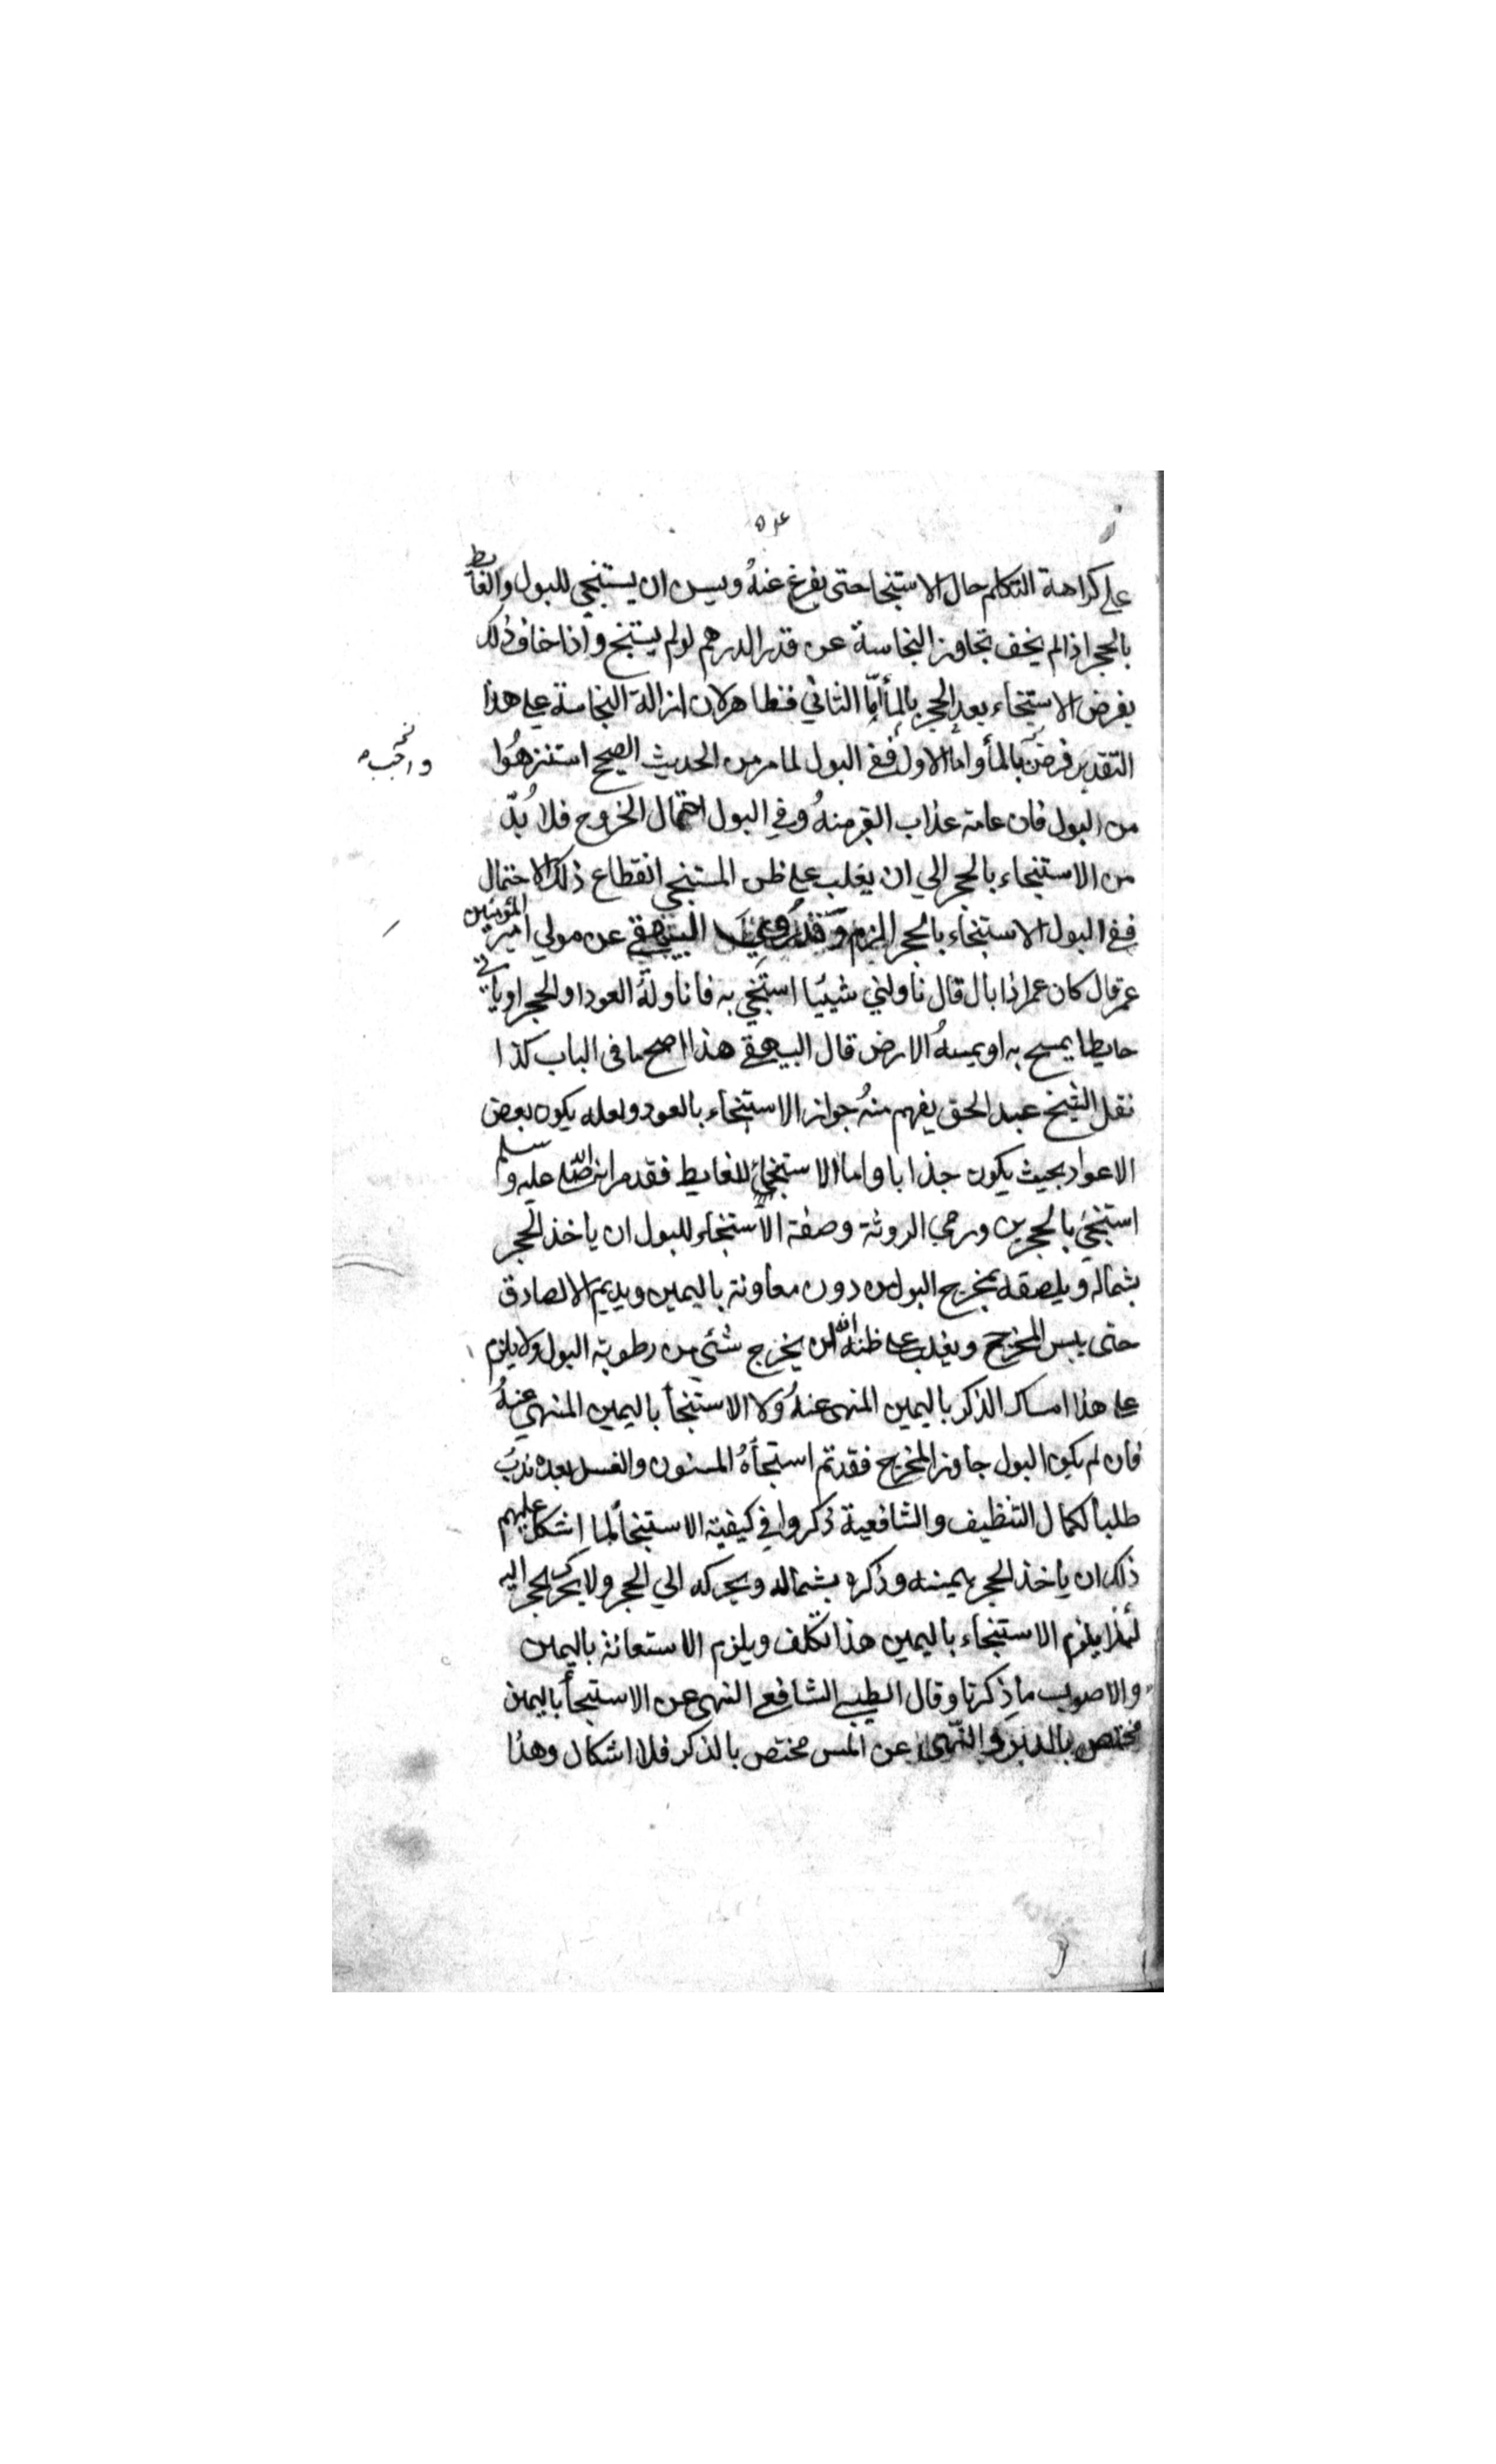 على كراهة التكلم حال الاستنجا حتى يفرغ عنهُ ويسن ان يستنجي للبول والغايط
بالحجر اذا لم يخف تجاوز النجاسة عن قدر الدرهم لو لم يستنج واذا خاف ذلك
يفرض الاستنجاء بعد الحجر بالمأ امّا الثاني فظاهر لان ازالة النجاسة على هذا
التقدير فرض بالمأ واما الاول ففى البول لما مر من الحديث الصحيح استنزهُوا
واجب
من البول فان عامة عذاب القبر منهُ وفي البول احتمال الخروج فلا بُدّ
من الاستنجاء بالحجر الي ان يغلب على ظن المستنجي انقطاع ذلك الاحتمال
ففى البول الاستنجاء بالحجر الزم وقد روى البيهقي عن مولي امير المؤمنين
عمر قال كان عمر اذا بال قال ناولني شيئا استنجي به فاناولهُ العود او الحجر او ياتي
حايطا يمسح به او يمسهُ الارض قال البيهقي هذا اصح ما فى الباب كذا
نقل الشيخ عبد الحق يفهم منهُ جواز الاستنجاء بالعود ولعله يكون بعض
الاعواد بحيث يكون جذابا واما الاستنجاء للغايط فقد مر انه صلى الله عليه وسلم
استنجى بالحجرين ورمي الروثة وصفة الاستنجاء للبول ان ياخذ الحجر
بشماله ويلصقه بمخرج البول من دون معاونة باليمين ويديم الالصادق
حتى يبس المخرج ويغلب على ظنه انه لن يخرج شئ من رطوبة البول ولا يلزم
على هذا امساك الذكر باليمين المنهى عنهُ ولا الاستنجأ باليمين المنهي عنهُ
فان لم يكن البول جاوز المخرج فقد تم استنجأهُ المسنون والغسل بعده ندبُ
طلبا لكمال التنظيف والشافعية ذكروا في كيفية الاستنجأ لما اشكل عليهم
ذلك ان ياخذ الحجر بيمينه وذكره بشماله ويحركه الي الحجر ولا يحرك الحجر اليه
لئلا يلزم الاستنجاء باليمين هذا تكلف ويلزم الاستعانة باليمين
والاصوب ما ذكرنا وقال الطيبي الشافعي النهى عن الاستنجأ باليمين
مختص بالدبر والنهي عن المس مختص بالذكر فلا اشكال وهذا